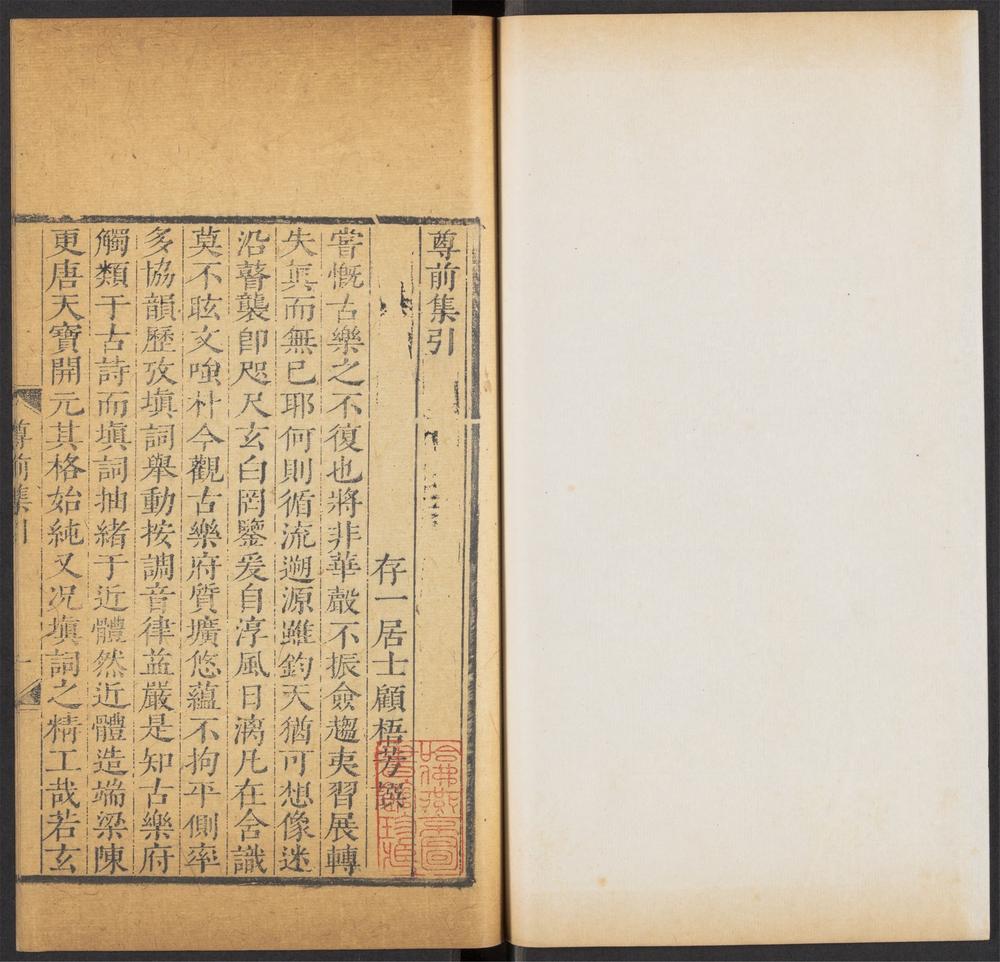 尊前集引
存一居士顧梧芳撰
嘗慨古樂之不復也將非華聲不振僉趨夷習展轉
失眞而無已耶何則循流遡源雖鈞天猶可想像迷
沿瞽襲卽咫尺玄白罔鑒爰自淳風日漓凡在含識
莫不眩文嗤朴今觀古樂府質壙悠蘊不拘平側率
多協韻歷攷塡詞舉動按調音律益嚴是知古樂府
觸類于古詩而塡詞抽緖于近體然近體造端梁陳
更唐天寶開元其格始純又况塡詞之精工哉若玄
尊前集引
一
哈佛燕京圖
書館珍藏